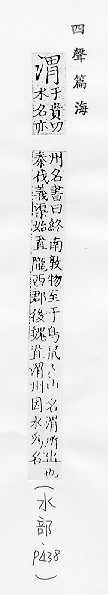 四聲篇海
渭于貴切水名亦
州名書曰終南敦物至于鳥鼠鼠山名渭所出也
秦伐義渠始置隴西郡後魏置渭州因水為名
（水部、P438）